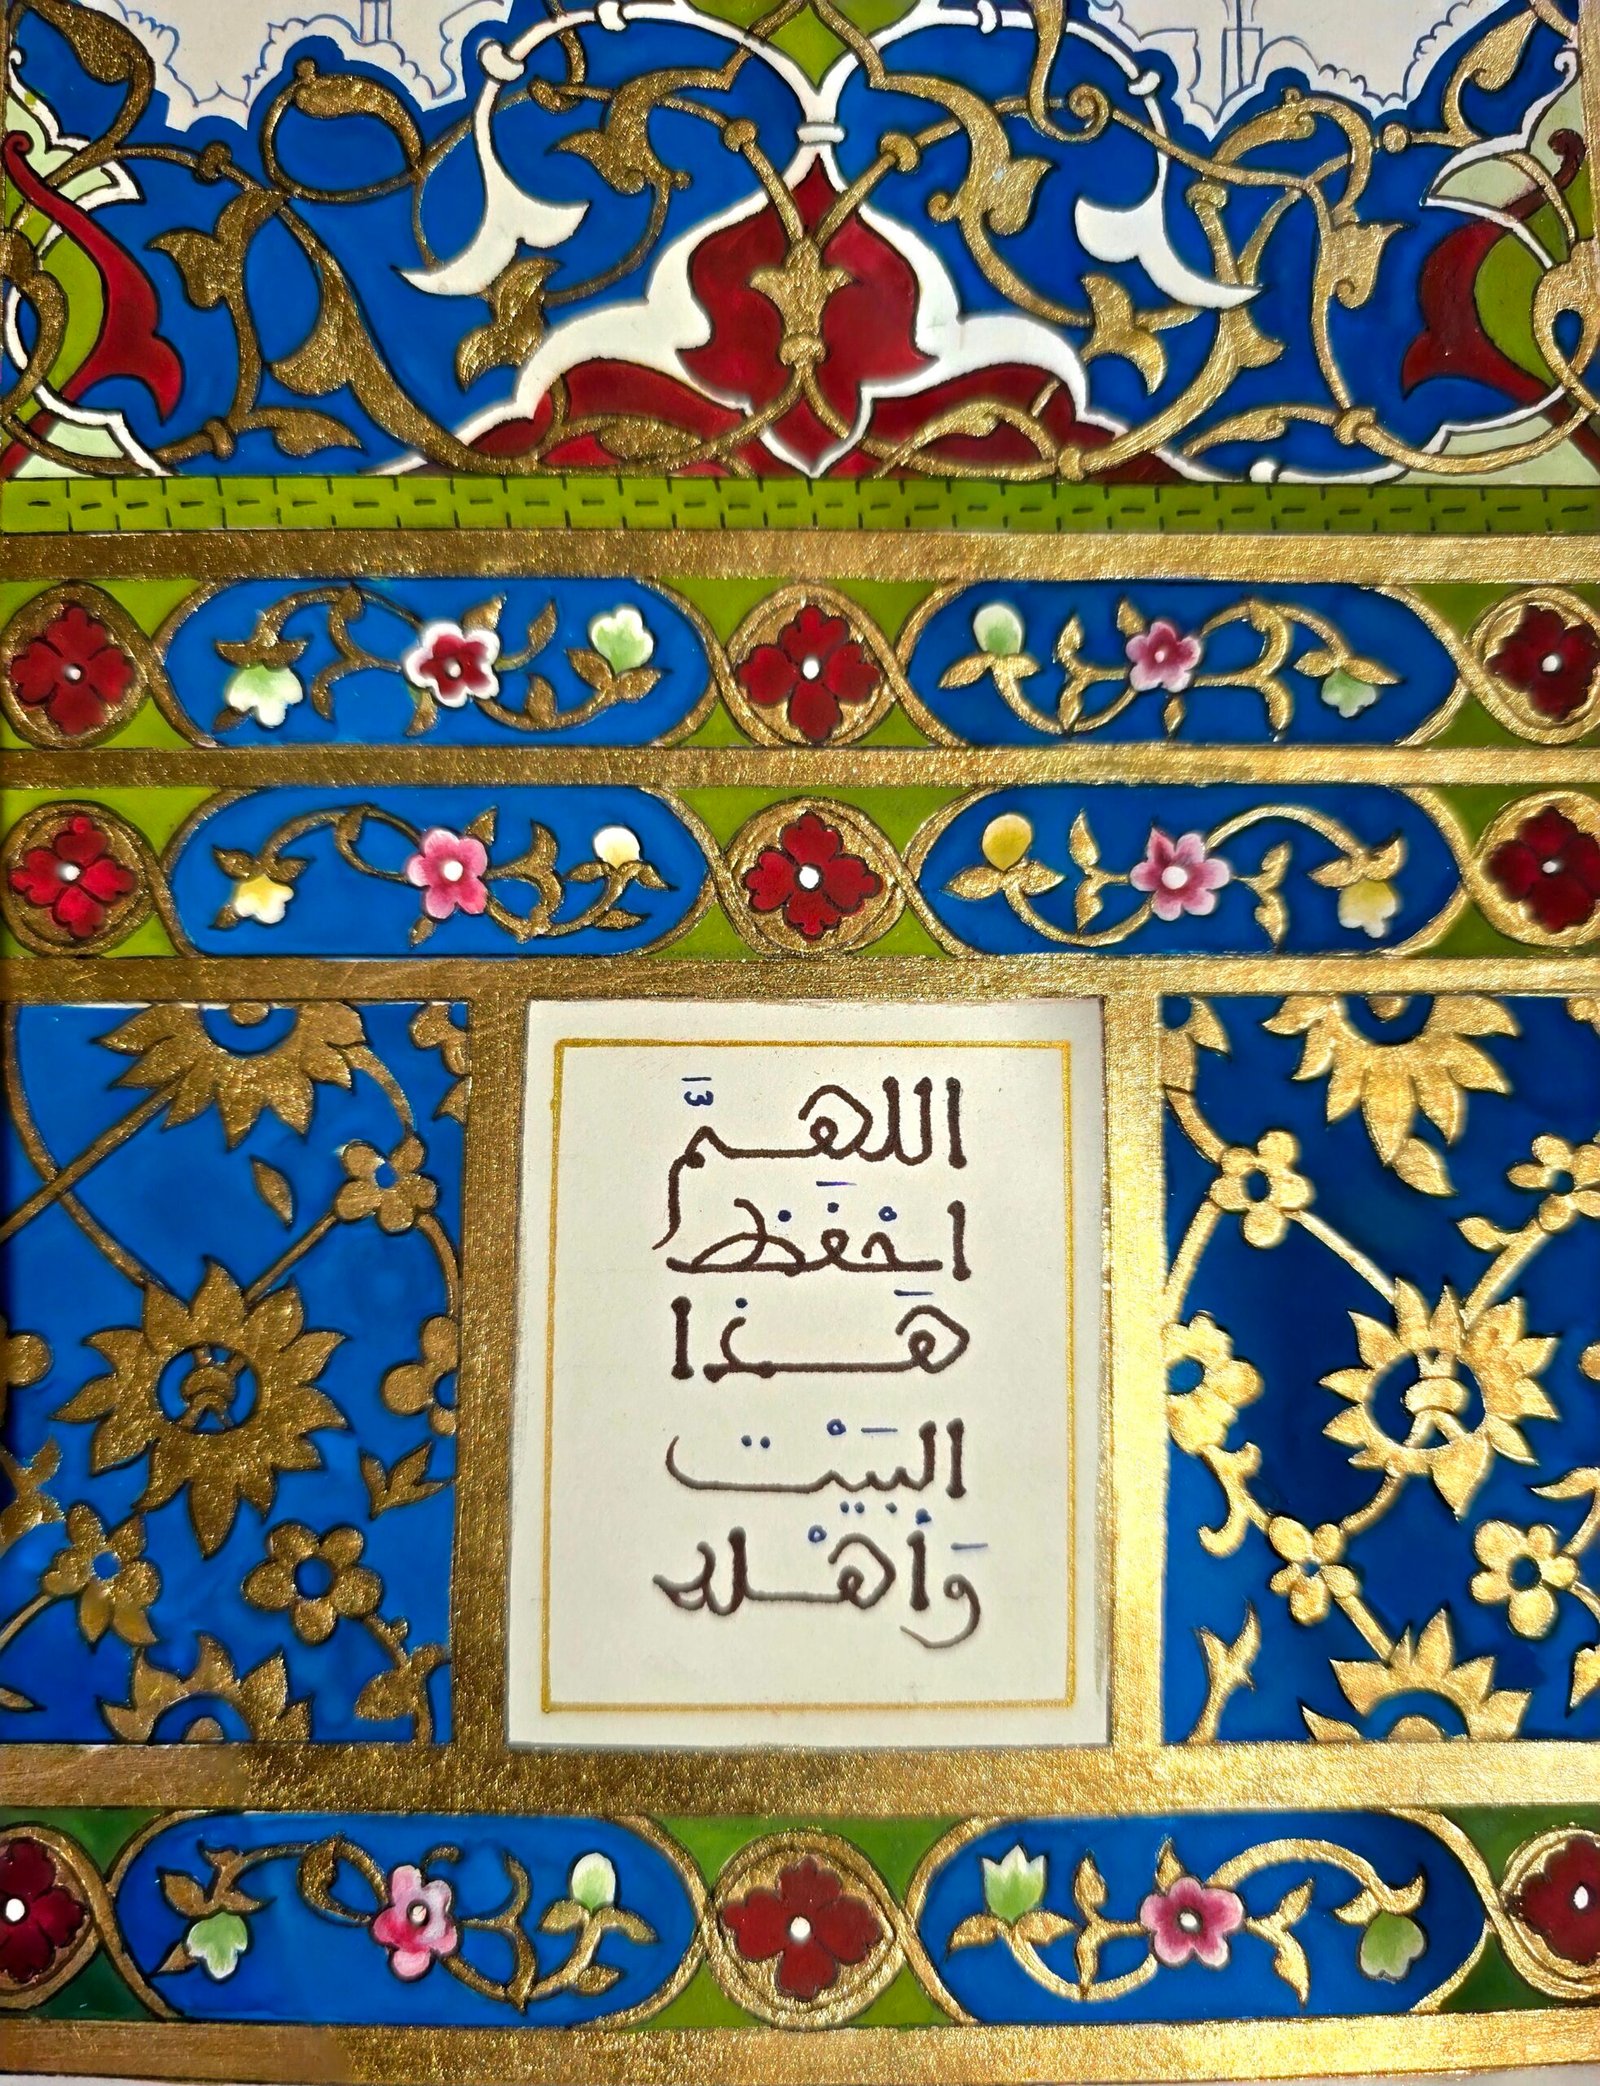 اللهم
احفظ
هذا
البيت
وأهله